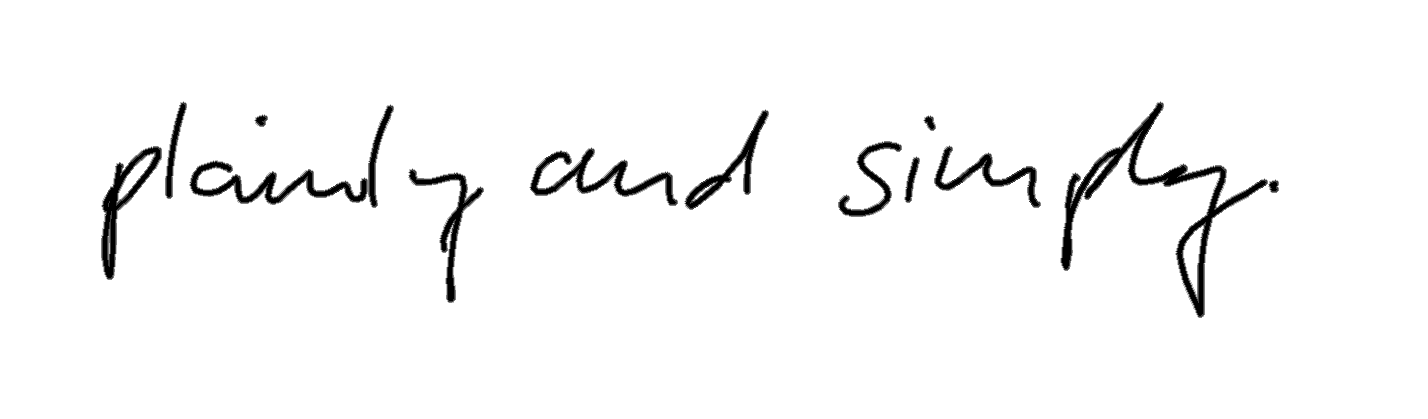 plainly and simply.